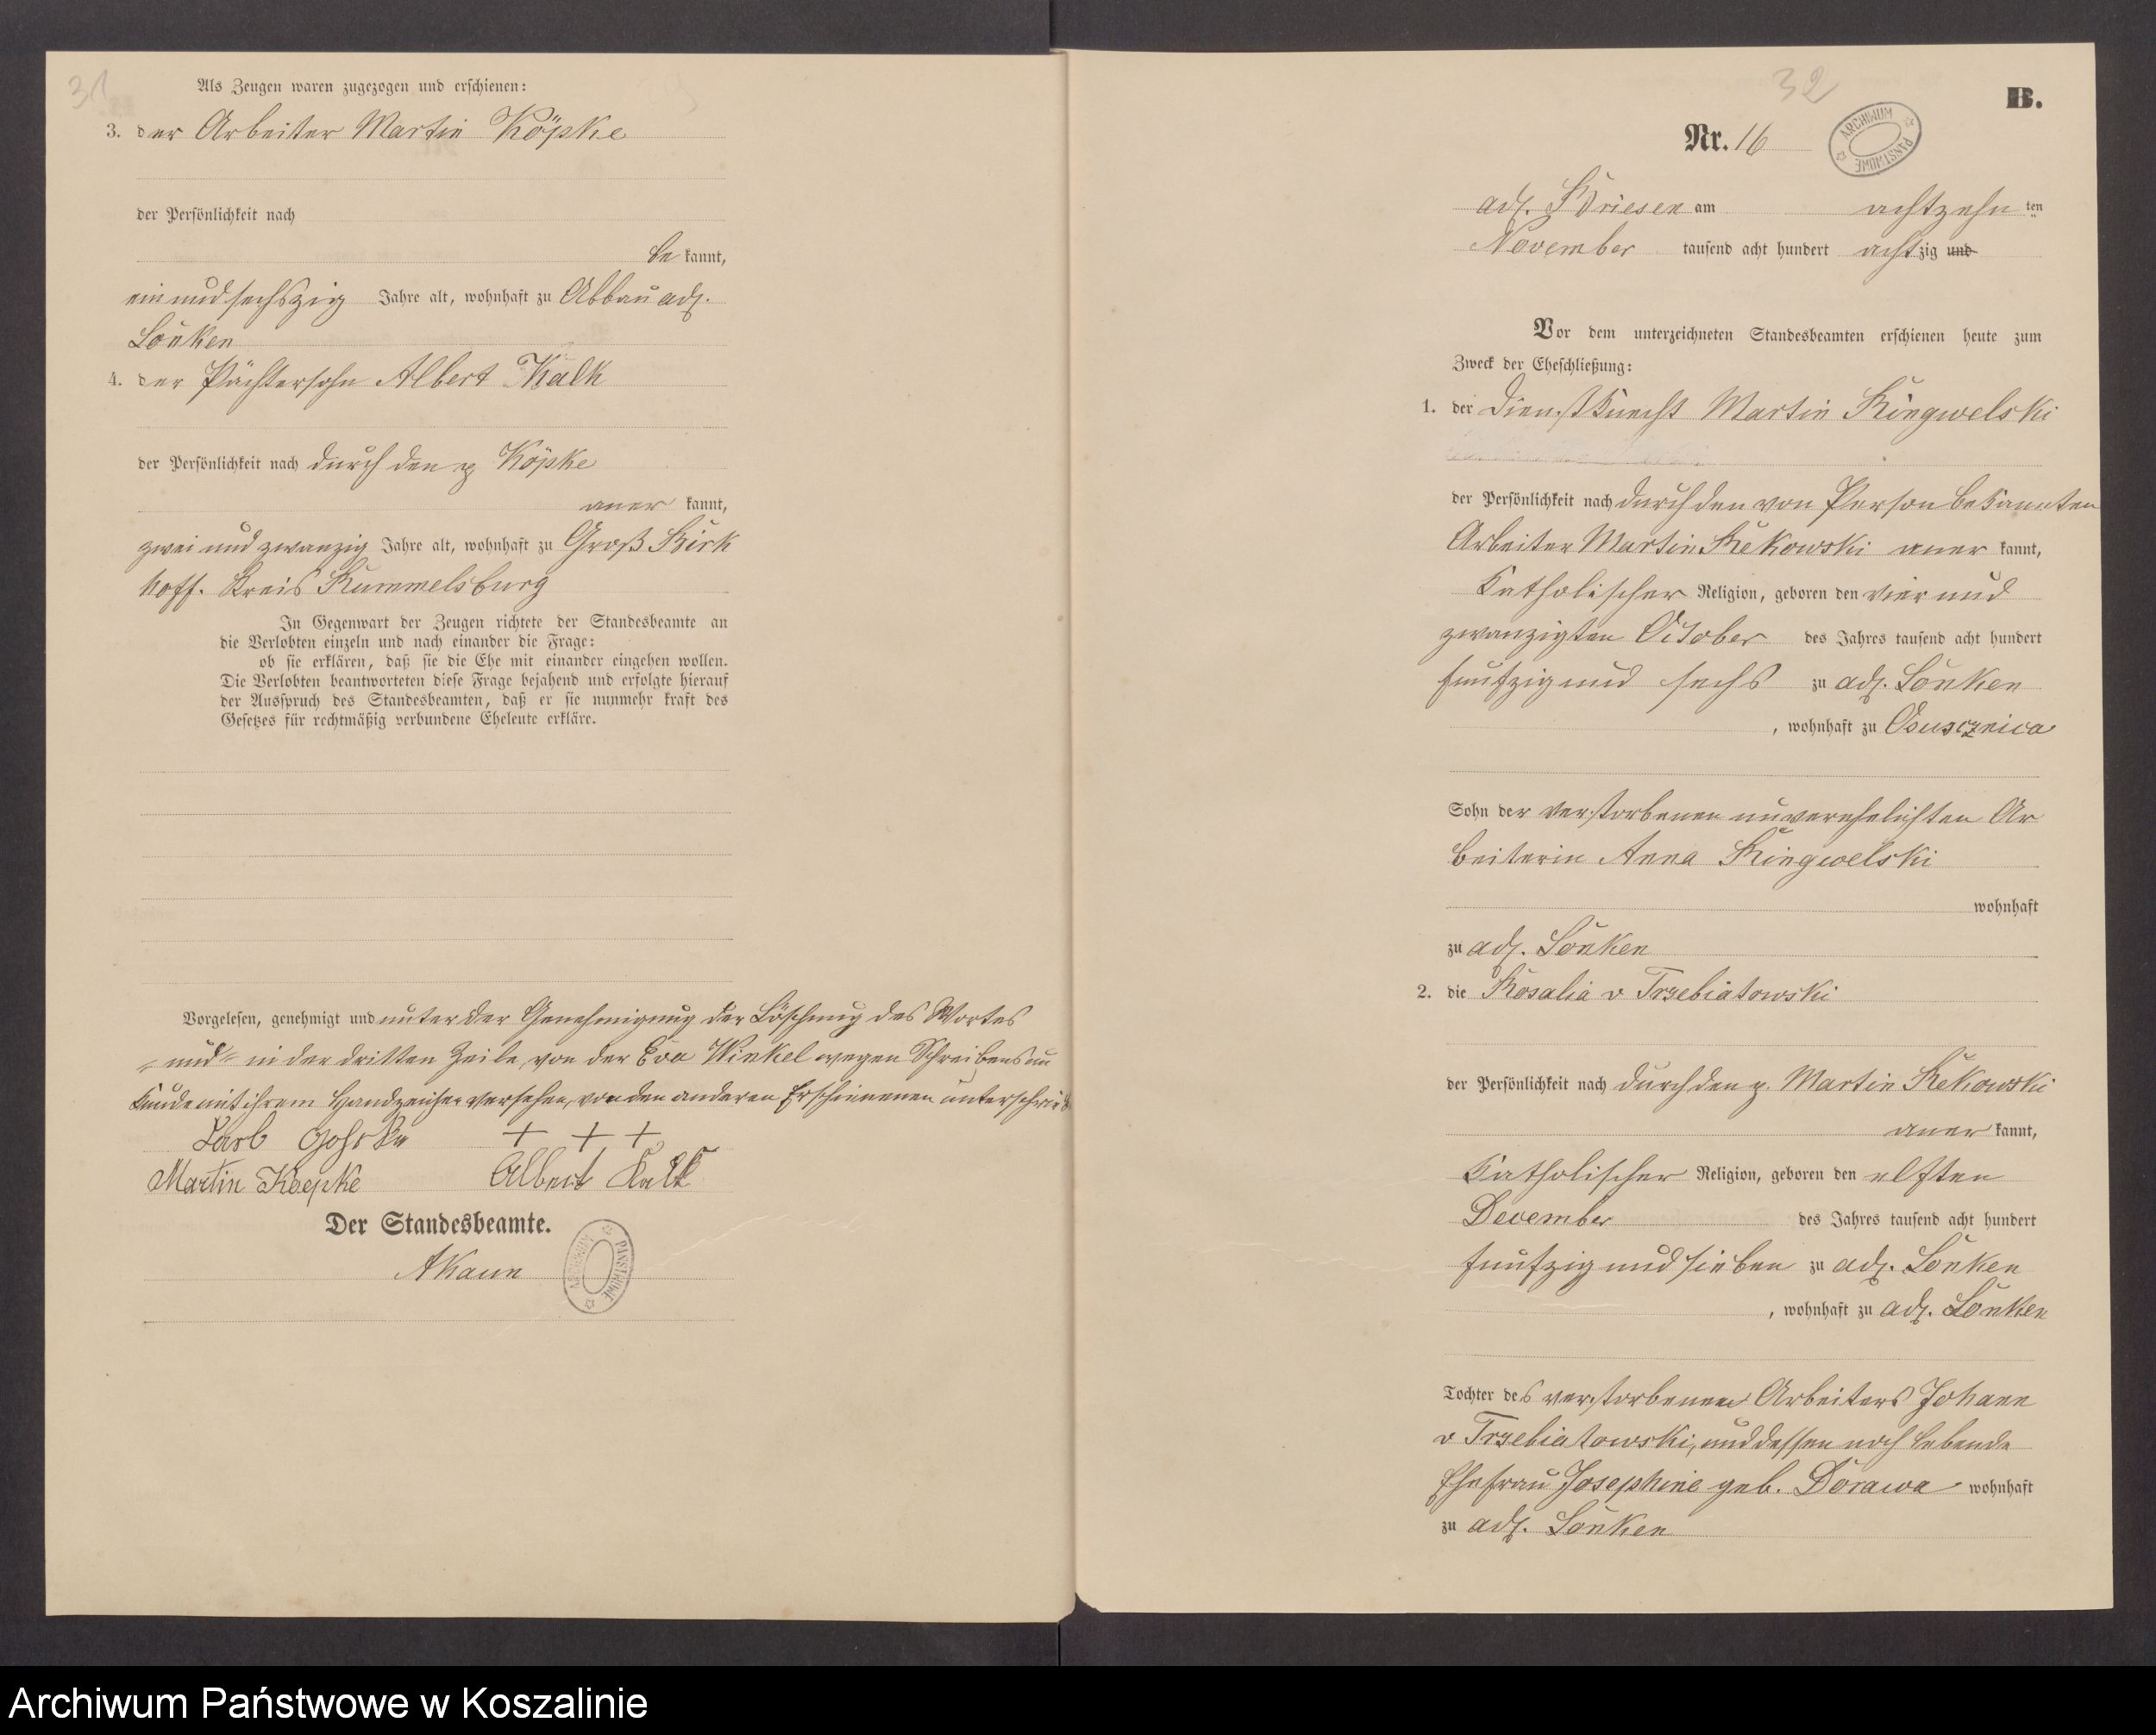 31
Als Zeugen waren zugezogen und erschienen:
3. der Arbeiter Martin Köpke
der Persönlichkeit nach
be kannt,
ein und sechszig Jahre alt, wohnhaft zu Abbau adl.
Lonken
4. der Pächtersohn Albert Kalk
der Persönlichkeit nach durch den p Köpke
aner kannt,
zwei und zwanzig Jahre alt, wohnhaft zu Groß Kirk
hoff. Kreis Rummelsburg
In Gegenwart der Zeugen richtete der Standesbeamte an
die Verlobten einzeln und nach einander die Frage:
ob sie erklären, daß sie die Ehe mit einander eingehen wollen.
Die Verlobten beantworteten diese Frage bejahend und erfolgte hierauf
der Ausspruch des Standesbeamten, daß er sie nunmehr kraft des
Gesetzes für rechtmäßig verbundene Eheleute erkläre.
Vorgelesen, genehmigt und unter der Genehmigung der Löschung des Wortes
"und" in der dritten Zeile, von der Eva Winkel wegen Schreibensun
kunde mit ihrem Handzeichen versehen, von den anderen Erschienenen unterschrieb
+ + +
Martin Koepke Albert Kalk
Der Standesbeamte.
ARCHIWUM PAŃSTWOWE
32
B.
Nr. 16
ARCHIWUM PAŃSTWOWE
adl. Briesen am achtzehn ten
November tausend acht hundert achtzig und
Vor dem unterzeichneten Standesbeamten erschienen heute zum
Zweck der Eheschließung:
1. der Dienstknecht Martin Ringwelski
der Persönlichkeit nach durch den von Person bekannten
Arbeiter Martin Rekowski aner kannt,
katholischer Religion, geboren den vier und
zwanzigten October des Jahres tausend acht hundert
funfzig und sechs zu adl. Lonken
, wohnhaft zu Osuscznica
Sohn der verstorbenen unverehelichten Ar
beiterin Anna Ringwelski
wohnhaft
zu adl. Lonken
2. die Rosalia v Trzebiatowski
der Persönlichkeit nach durch den p. Martin Rekowski
aner kannt,
katholischer Religion, geboren den elften
December des Jahres tausend acht hundert
funfzig und sieben zu adl. Lonken
, wohnhaft zu adl. Lonken
Tochter des verstorbenen Arbeiters Johann
v Trzebiatowski, und dessen noch lebende
Ehefrau Josephine geb. Dorawa wohnhaft
zu adl. Lonken
Archiwum Państwowe w Koszalinie